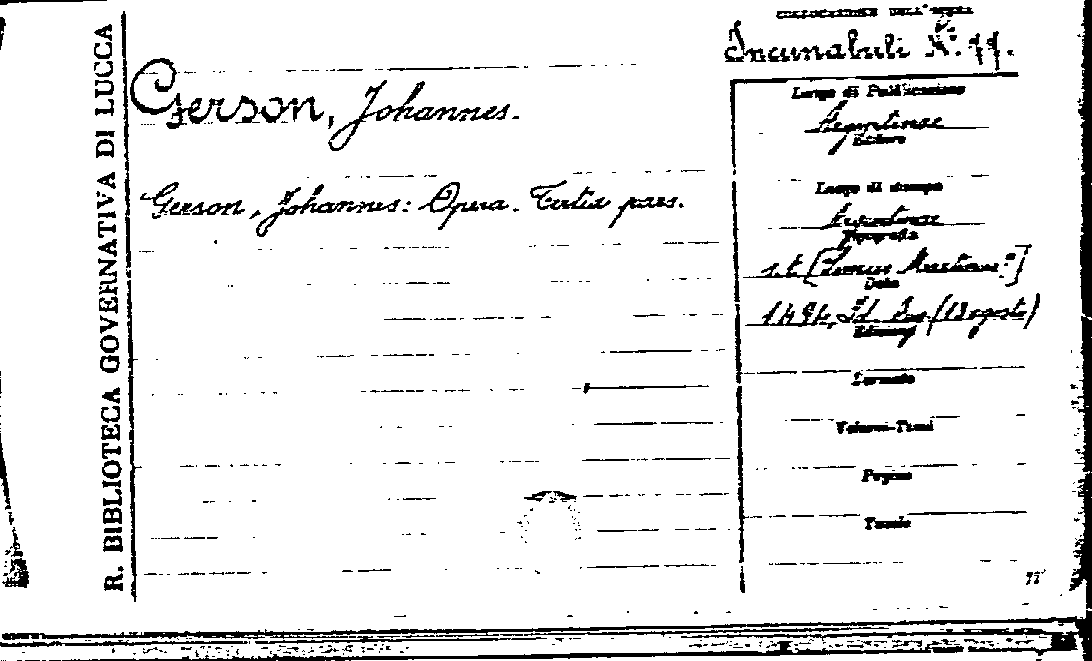 R. BIBLIOTECA GOVERNATIVA DI LUCCA
COLLOCAZIONE DELL'OPERA
Incunabuli N. 77.
Gerson, Johannes.
Gerson, Johannes: Opera. Tertia pars.
Luogo di Pubblicazione
Argentinae
Editore
Luogo di stampa
Argentinae
Tipografia
s.t.
Data
1494, Id. (13 agosto)
Formato
Volumi-Tomi
Pagine
Tavole
77